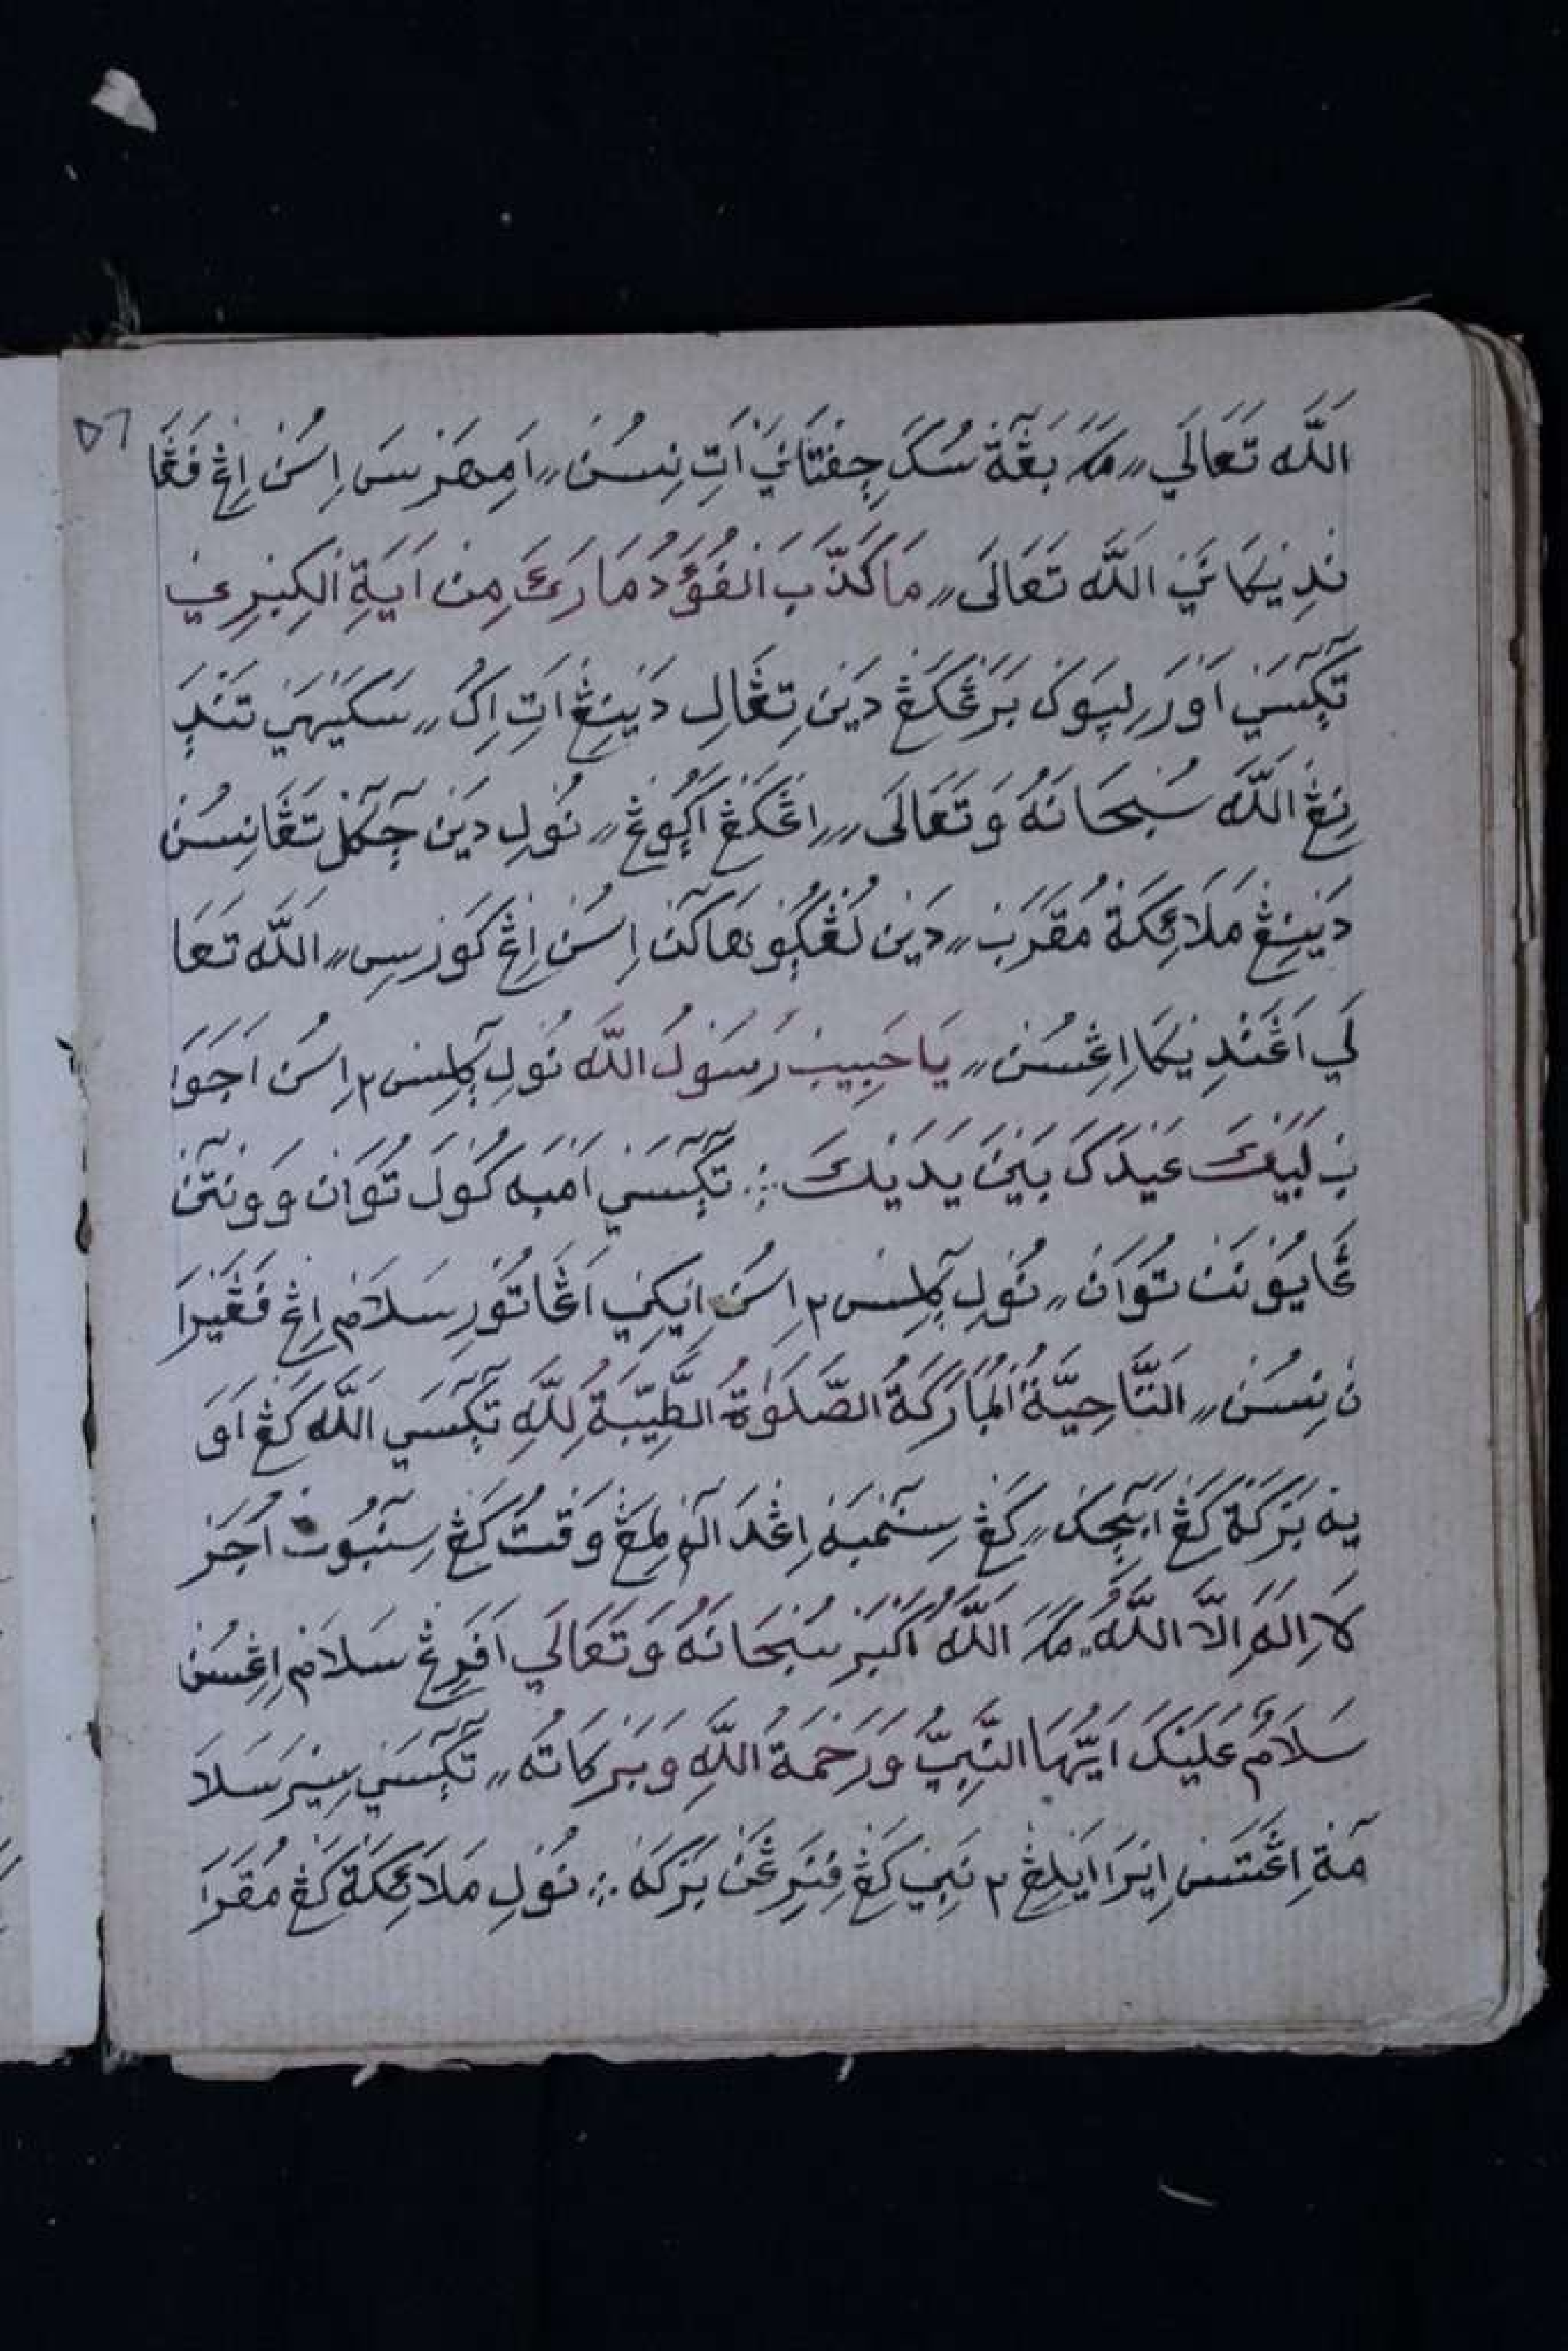 ٥٦
اَللّٰه تَعَالَي ،، مَكَ بَڠَةْ سُكَ چِفْتَانَيْ اَتِ نِسُنْ ،، اَمِهَرْسَى اِسُنْ اِڠْ فَڠَا
نْدِيكَانَيْ اَللّٰه تَعَالَى ،، مَا كَذَّبَ الْفُؤَدُ مَا رَئَ مِنْ اٰيَةِ الْكِبْرِيْ
تٓڮٓسَيْ اَوْرَ لِڽَوكْ بَرَڠْكَڠْ دَيْنْ تِڠَالِ دَيْنِڠْ اَتِ اِكُ ،، سَكَيْهَيْ تَنْدَ
نِڠْ اَللّٰه سُبْحَانَهُ وَتَعَالَى ،،، اِڠْكَڠْ اَڮُوڠْ ،، نُولِ دَيْنْ چٓكٓلْ تَڠَانِسُنْ
دَيْنِڠْ مَلَائِكَةْ مُقَرَبْ ،، دَيْنْ لُڠْڮُوهَاكٓنْ اِسُنْ اِڠْ كُورْسِى ،، اَللّٰه تَعَا
لَي اَڠَنْدِيكَا اِڠِسُنْ ،، يَا حَبِيبِ رَسُولُ اللّٰه نُولِ ڮٓلِسْ ٢ اِسُنْ اَجَوَا
بْ لَبَّيْكَ عَبْدَكَ بَيْنَ يَدَيْكَ ؞ تٓڮٓسَيْ اَمْبَهْ كَولَ تُوَانْ وَونْتٓنْ
ڠَايُونَنْ تُوَانْ ،، نُولِ ڮٓلِسْ ٢ اِسُنْ اِيْكِيْ اَڠَاتُورِ سَلَامْ اِڠْ فَڠَيْرَا
نْ نِسُنْ ،، اَلتَّاحِيَّةُ الْمُبَارَكَةُ الصَّلَوٰةُ الطَّيِّبَةُ لِلّٰهِ تٓڮٓسَي اَللّٰه كَڠْ اَوَ
يهْ بَرْكَةْ كَڠْ اَبٓچِكْ ،، كَڠْ سِنٓمْبَهْ اِڠْدَالٓمْ لِمَڠْ وَقْتُ كَڠْ سِنٓبُوتْ اُجَرْ
لَا اِلَهَ اِلَّا اللّٰهُ ،، مَكَ اَللّٰهُ اَكْبَرْ سُبْحَانَهُ وَتَعَالَي اَفَرِڠْ سَلَامْ اِڠِسُنْ
سَلَامٌ عَلَيْكَ اَيُّهَا النَّبِيُّ وَرَحْمَةُ اللّٰهِ وَبَرَكَاتُه ،، تٓڮٓسَيْ سِيْرَ سَلَا
مٓةْ اِڠَتَسْ اِيْرَا اَيْلِڠْ ٢ نَبِيْ كَڠْ فِنَرِڠَنْ بَرْكَهْ ؞ نُولِ مَلَائِكَةْ كَڠْ مُقَرَا